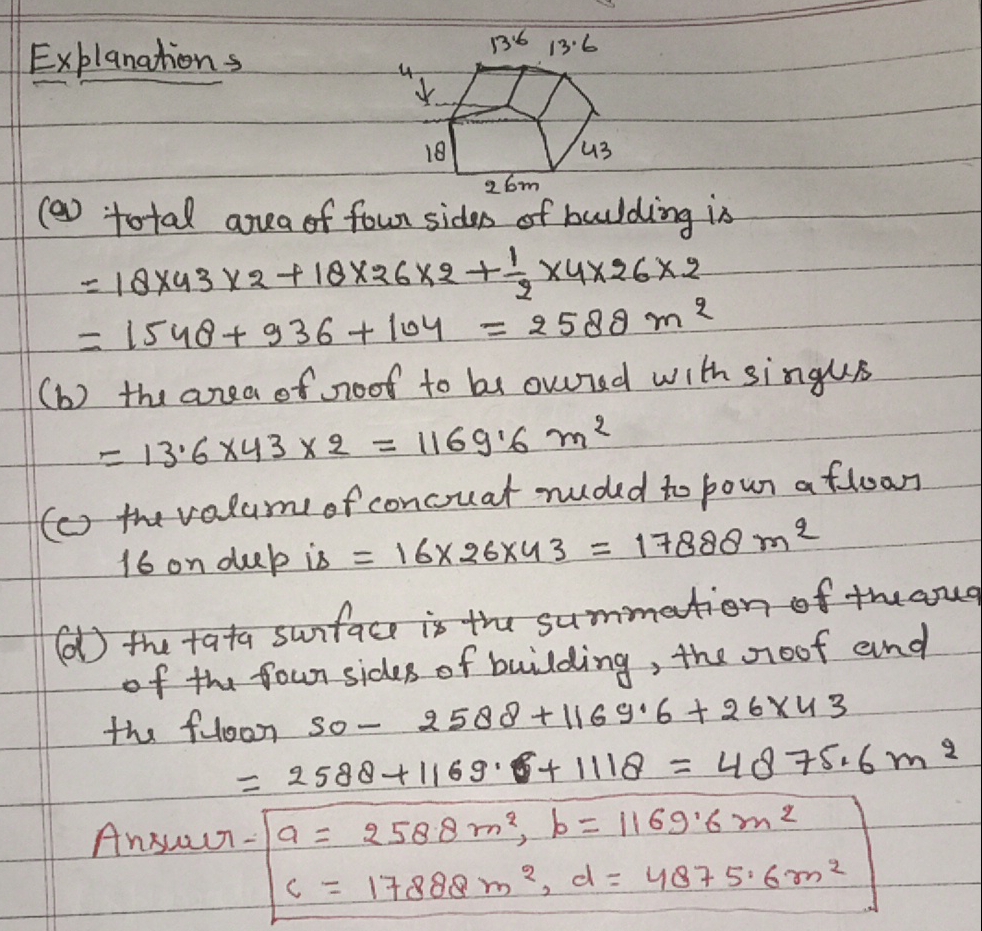 Explanations
13.6 13.6
4
18
43
26m
(a) total area of four sides of building is
= 18×43×2+18×26×2+1/2×4×26×2
= 1548+936+104 = 2588 m²
(b) the area of roof to be overed with singles
= 13.6×43×2 = 1169.6 m²
(c) the valume of concreat nuded to pour a floar
16 on deep is = 16×26×43 = 17888 m²
(d) the tata surface is the summation of the area
of the four sides of building, the roof and
the floor so - 2588+1169.6+26×43
= 2588+1169.6+1118 = 4875.6 m²
Answer - a = 2588 m², b = 1169.6 m²
c = 17888 m², d = 4875.6 m²